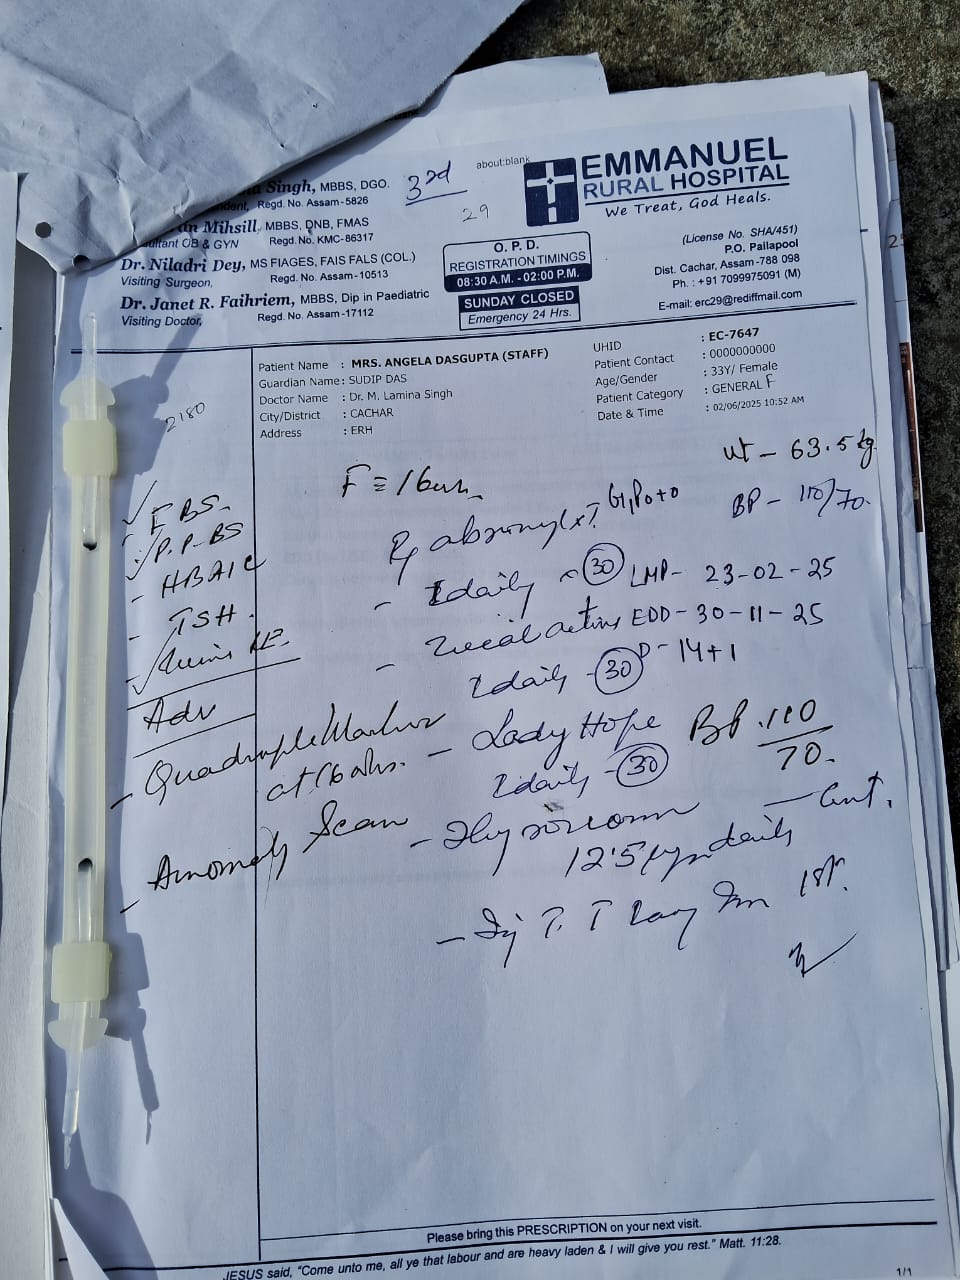 Singh, MBBS, DGO.
Regd. No. Assam-5826
3rd
about:blank
29
Mihsill, MBBS, DNB, FMAS
OB & GYN Regd. No. KMC-86317
Dr. Niladri Dey, MS FIAGES, FAIS FALS (COL.)
Visiting Surgeon, Regd. No. Assam-10513
Dr. Janet R. Faihriem, MBBS, Dip in Paediatric
Visiting Doctor, Regd. No. Assam-17112
O. P. D.
REGISTRATION TIMINGS
08:30 A.M. - 02:00 P.M.
SUNDAY CLOSED
Emergency 24 Hrs.
EMMANUEL
RURAL HOSPITAL
We Treat, God Heals.
(License No. SHA/451)
P.O. Pailapool
Dist. Cachar, Assam-788 098
Ph. : +91 7099975091 (M)
E-mail: erc29@rediffmail.com
Patient Name : MRS. ANGELA DASGUPTA (STAFF)
Guardian Name : SUDIP DAS
Doctor Name : Dr. M. Lamina Singh
City/District : CACHAR
Address : ERH
UHID : EC-7647
Patient Contact : 0000000000
Age/Gender : 33Y/ Female
Patient Category : GENERAL F
Date & Time : 02/06/2025 10:52 AM
2180
FBS
P.P-BS
- HBA1C
- TSH
Urine RE
Adv
- Quadruple Marker
at 16
- Anomaly Scan
wt - 63.5 kg
G1P0+0
BP - 110/70
daily 30
LMP - 23-02-25
EDD - 30-11-25
daily - 30
P - 14+1
- Lady Hope
daily - 30
BP. 110/70.
12.5 daily
- Inj T. T Im 1st.
Please bring this PRESCRIPTION on your next visit.
JESUS said, "Come unto me, all ye that labour and are heavy laden & I will give you rest." Matt. 11:28.
1/1